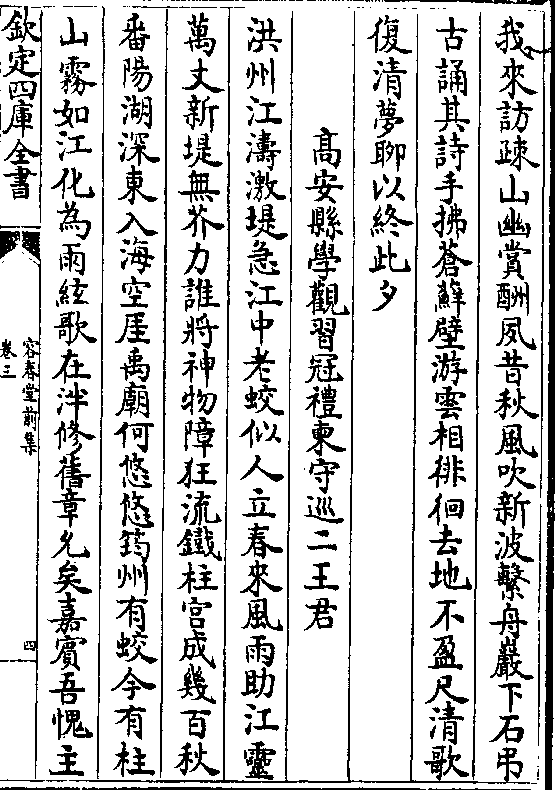 我來訪疎山幽賞酬夙昔秋風吹新波繫舟巖下石弔
古誦其詩手拂蒼蘚壁游雲相徘徊去地不盈尺清歌
復清夢聊以終此夕
高安縣學觀習冠禮柬守巡二王君
洪州江濤激堤急江中老蛟似人立春來風雨助江靈
萬丈新堤無芥力誰將神物障狂流鐵柱宮成幾百秋
番陽湖深東入海空厓禹廟何悠悠筠州有蛟今有柱
山霧如江化為雨絃歌在泮修舊章允矣嘉賓吾愧主
欽定四庫全書
容春堂前集
卷三
四